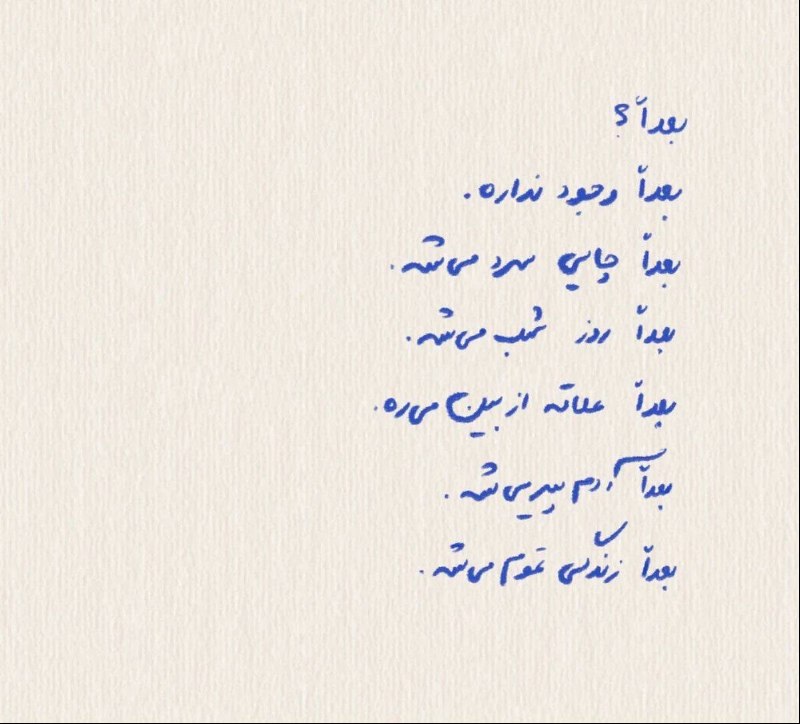 بعداً؟
بعداً وجود نداره.
بعداً چایی سرد می‌شه.
بعداً روز شب می‌شه.
بعداً علاقه از بین می‌ره.
بعداً آدم پیر می‌شه.
بعداً زندگی تموم می‌شه.